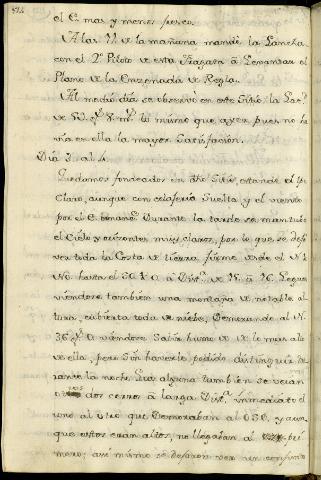 el E. mas y menos fresco.
A las 11 de la mañana mandé la Lancha
con el 2º Piloto de esta Fragata à Levantar el
Plano de la Ensenada de Regla.
Al medio día se observó en este Sitio la Lat.
de 59 g.s 8 m.s lo mismo que ayer pues no ha
via en ella la mayor Satisfacion.
Dia 3. al 4.
Quedamos fondeados en dho Sitio, estando el
Claro, aunque con celageria Suelta y el viento
por el E. bonancible. Durante la tarde se mantubo
el Cielo y orizontes muy claros, por lo que se dejó
ver toda la Costa de tierra firme desde el N
NO. hasta el SO à Dist.a de 15. à 16. Leguas
viendose tambien una montaña de notable al
tura, cubierta toda de nieve, Demorando al N.
36 viendose Salir humo de lo mas alto
de ella, pero Sin haverse podido distinguir du
rante la noche Luz alguna tambien se veian
dos cerros à larga Dist.a inmediato el
uno al otro que Demoraban al OSO, y aun
que estos eran altos, no llegaban al pri
mero; asi mismo se dejaron ver